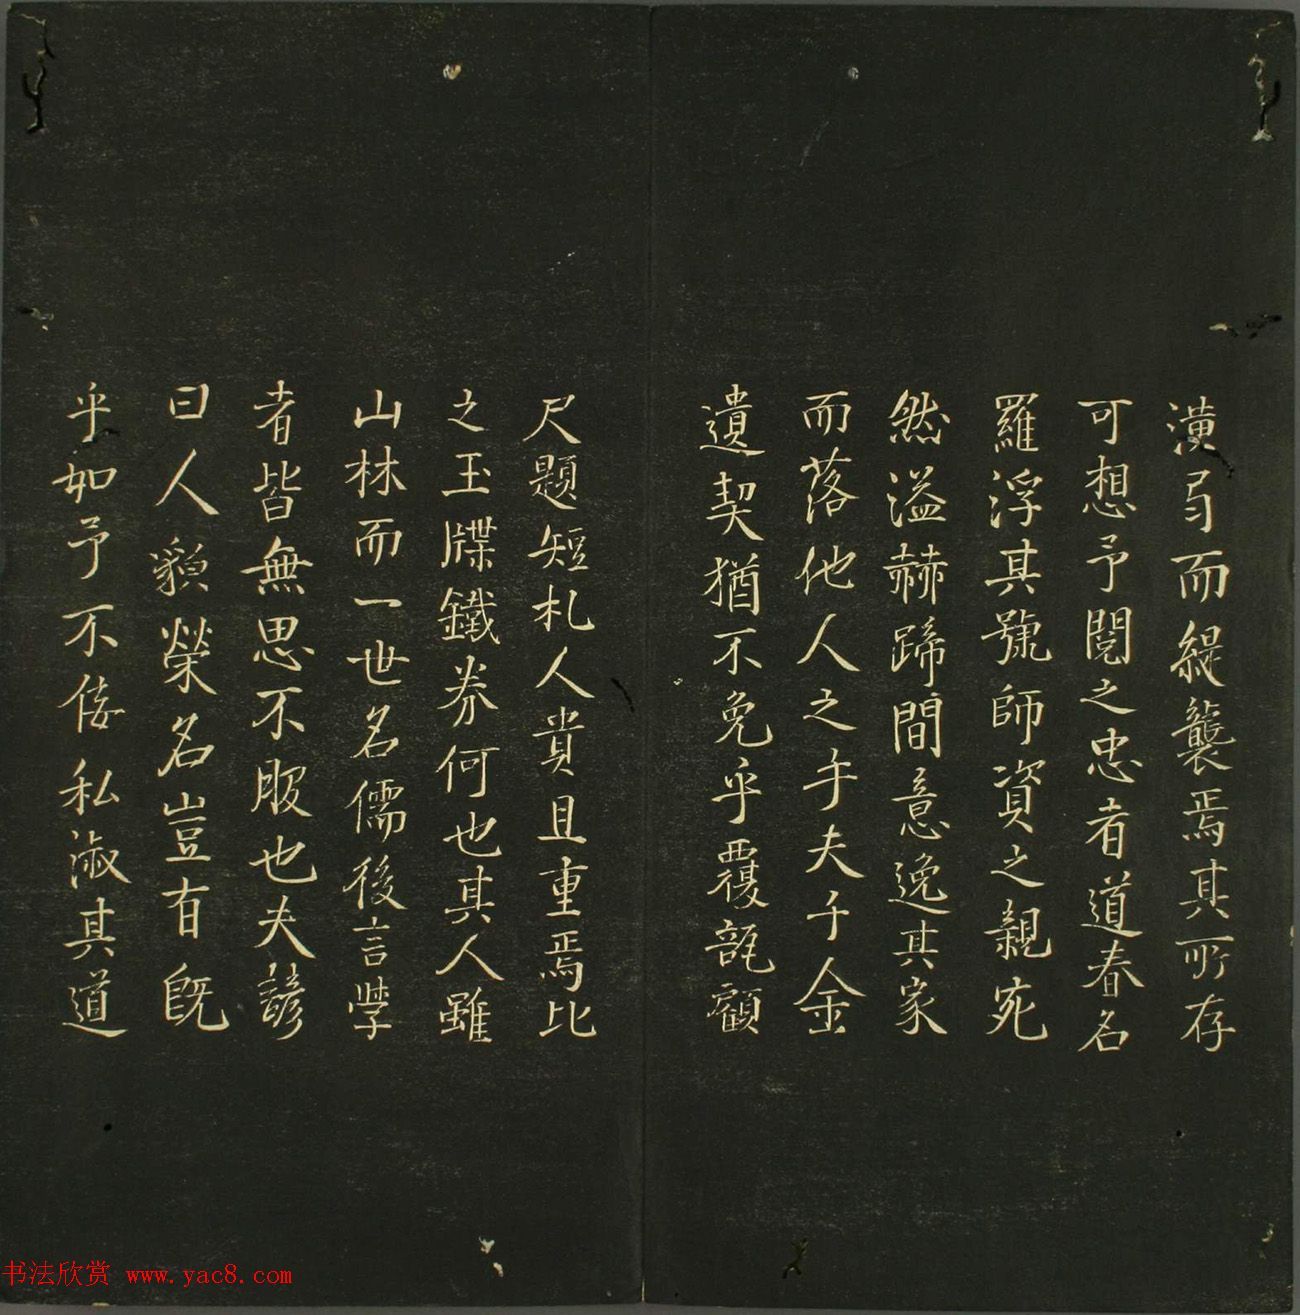 潢局而緹襲焉其所存
可想予閱之忠者道春名
羅浮其號師資之親宛
然溢赫蹄間意逸其家
而落他人之手夫千金
遺契猶不免乎覆瓿顧
尺題短札人貴且重焉比
之玉牒鐵券何也其人雖
山林而一世名儒後言學
者皆無思不服也夫諺
曰人貌榮名豈有既
乎如予不佞私淑其道
书法欣赏 www.yac8.com